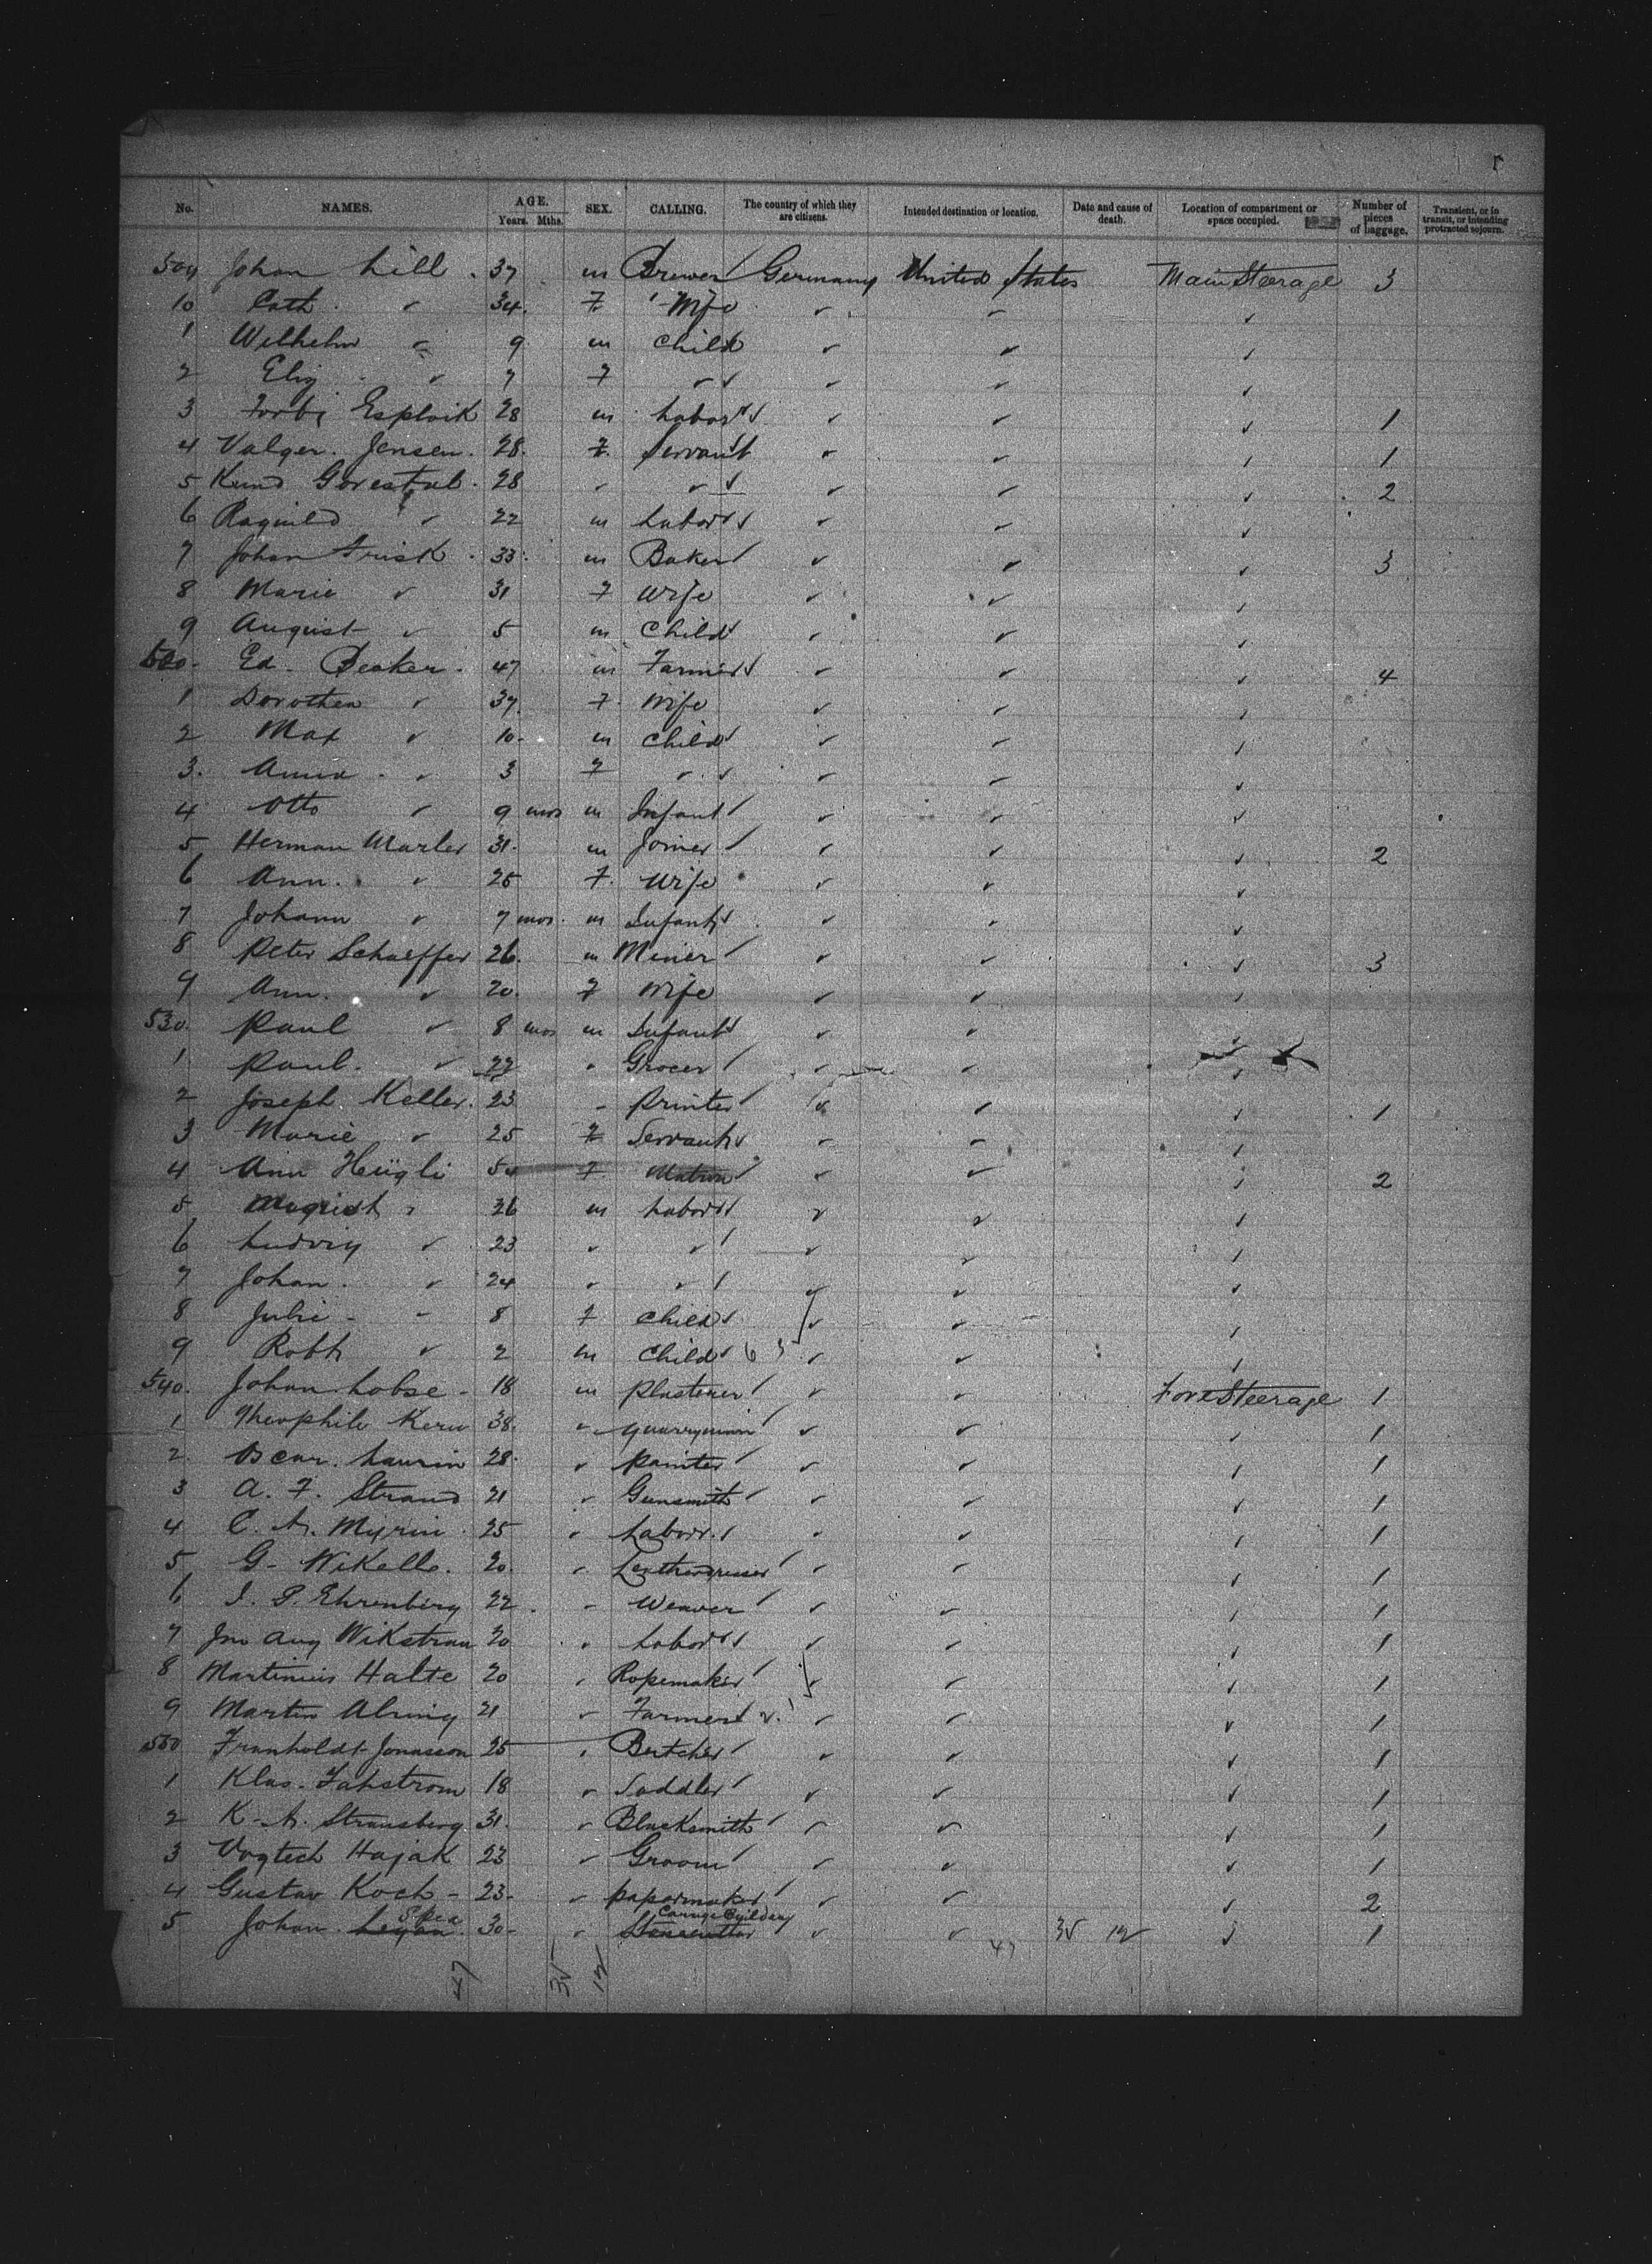 No. NAMES. AGE. Years. Mths. SEX. CALLING. The country of which they are citizens. Intended destination or location. Date and cause of death. Location of compartment or space occupied. Number of pieces of baggage. Transient, or in transit, or intending protracted sojourn.
509 Johan Lill 37 m Brewer Germany United States Main Steerage 3
10 Cath 34 F Wife
1 Wilhelm 9 m Child
2 Eliz 7 F
3 28 m Labor 1
4 Valger. Jensen. 28. F. Servant 1
5 28 2
6 22 m Labor
7 Johan Frisk 33 m Baker 3
8 Marie 31 F Wife
9 August 5 m Child
520. Ed. Beaker 47 m Farmer 4
1 Dorothea 37 F. Wife
2 Max 10 m Child
3. Anna 3 F
4 Otto 9 mos m Infant
5 Herman Marler 31. m Joiner 2
6 Ann. 25 F. Wife
7 Johann 7 mos. m Infant
8 Peter Schaeffer 26. m Miner 3
9 Ann. 20. F Wife
530. Paul 8 mos m Infant
1 Paul. 22 Grocer
2 Joseph Keller. 23 Printer 1
3 Marie 25 F Servant
4 Ann Hügli F Matron 2
5 26 m Labor
6 Ludvig 23
7 Johan. 24
8 Julie 8 F Child
9 Robt 2 m Child 6
540. Johan Lobse 18 m Plasterer Fore Steerage 1
1 Theophile Kern 38. Quarryman 1
2. Oscar. Laurin 28 Painter 1
3 A. F. Strand 21 Gunsmith 1
4 C. A. Myrin 25 Labor. 1
5 G. Wikell. 20. Leatherdresser 1
6 I. P. Ehrenberg 22. Weaver 1
7 Jno Aug Wikstran 20 Labor 1
8 Martinius Halte 20 Ropemaker 1
9 Martin Alring 21 Farmer 1
550 Franholdt Jonasson 25 Butcher 1
1 Klas. Fahstrom 18 Saddler 1
2 K. A. Stransberg. 31. Blacksmith 1
3 Vogtech Hajak 23 Groom 1
4 Gustav Koch 23 papermaker 2
5 Johan 30 Stonecutter 47 35 12 1
47 35 12